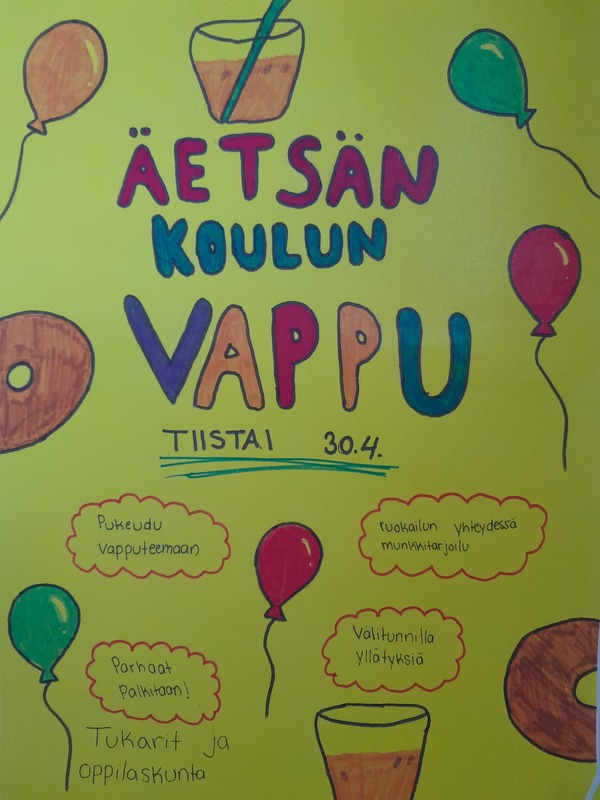 ÄETSÄN
KOULUN
VAPPU
TIISTAI 30.4.
Pukeudu
vapputeemaan
ruokailun yhteydessä
munkkitarjoilu
Välitunnilla
yllätyksiä
Parhaat
palkitaan!
Tukarit ja
oppilaskunta